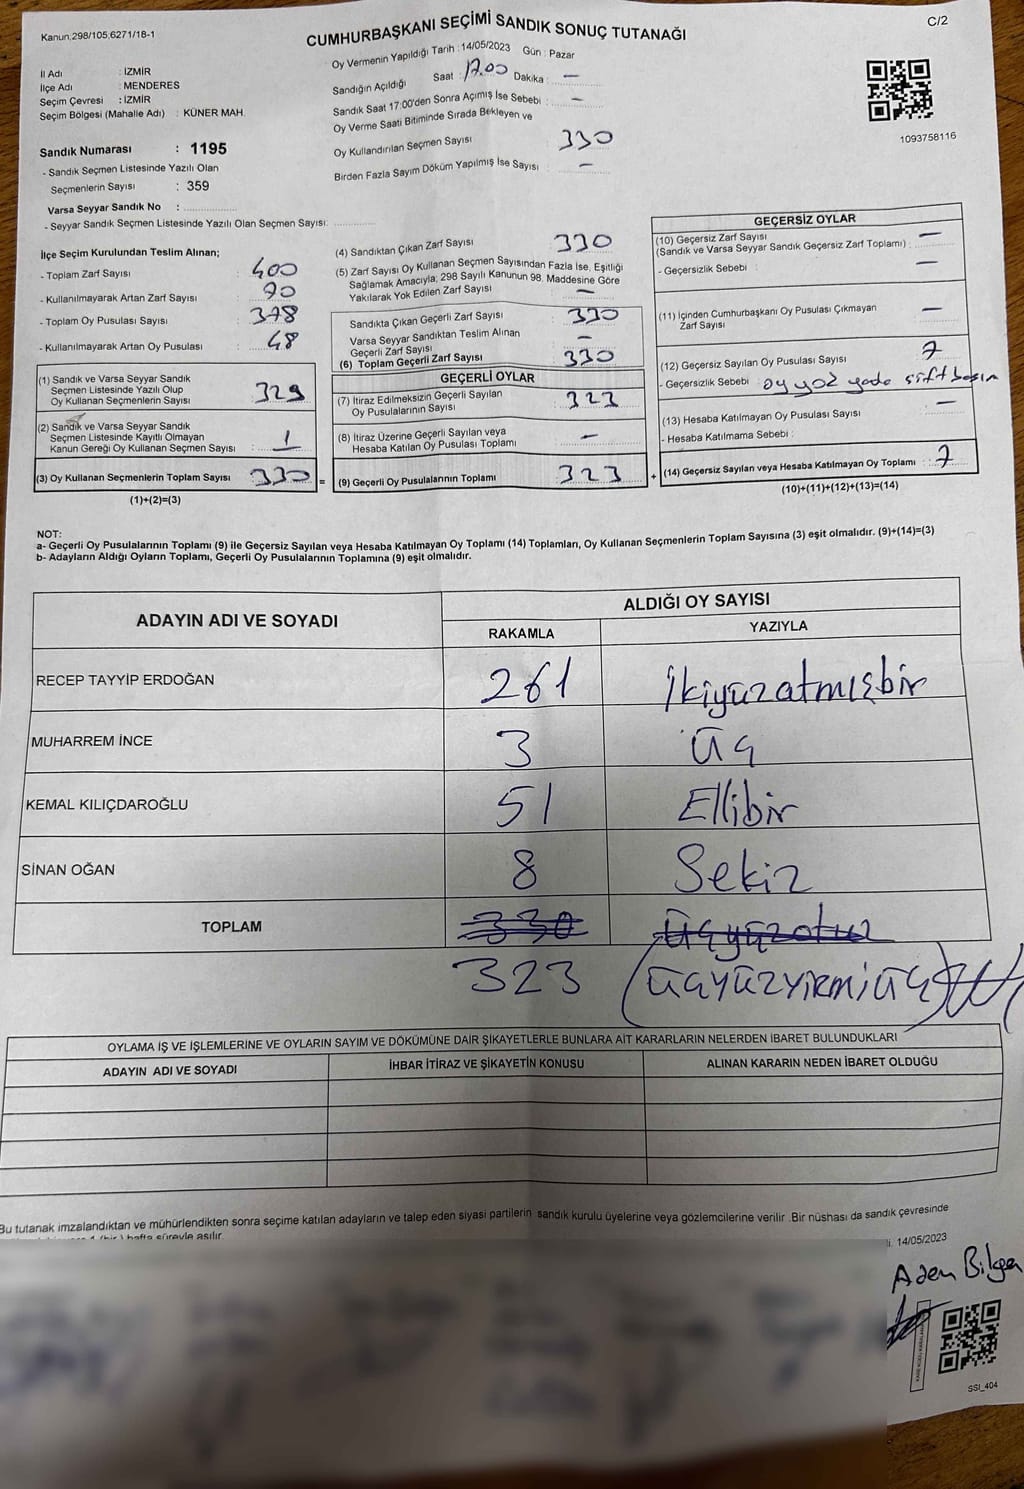 Kanun,298/105,6271/18-1
C/2
CUMHURBAŞKANI SEÇİMİ SANDIK SONUÇ TUTANAĞI
İl Adı : İZMİR
İlçe Adı : MENDERES
Seçim Çevresi : İZMİR
Seçim Bölgesi (Mahalle Adı) : KÜNER MAH.
Sandık Numarası : 1195
- Sandık Seçmen Listesinde Yazılı Olan
Seçmenlerin Sayısı : 359
Varsa Seyyar Sandık No :
- Seyyar Sandık Seçmen Listesinde Yazılı Olan Seçmen Sayısı:
Oy Vermenin Yapıldığı Tarih : 14/05/2023 Gün : Pazar
Sandığın Açıldığı Saat : 17.00 Dakika : —
Sandık Saat 17:00'den Sonra Açımış İse Sebebi : —
Oy Verme Saati Bitiminde Sırada Bekleyen ve
Oy Kullandırılan Seçmen Sayısı : 330
Birden Fazla Sayım Döküm Yapılmış İse Sayısı : —
1093758116
İlçe Seçim Kurulundan Teslim Alınan;
- Toplam Zarf Sayısı : 400
- Kullanılmayarak Artan Zarf Sayısı : 70
- Toplam Oy Pusulası Sayısı : 378
- Kullanılmayarak Artan Oy Pusulası : 48
(1) Sandık ve Varsa Seyyar Sandık
Seçmen Listesinde Yazılı Olup
Oy Kullanan Seçmenlerin Sayısı : 329
(2) Sandık ve Varsa Seyyar Sandık
Seçmen Listesinde Kayıtlı Olmayan
Kanun Gereği Oy Kullanan Seçmen Sayısı : 1
(3) Oy Kullanan Seçmenlerin Toplam Sayısı : 330
(1)+(2)=(3)
(4) Sandıktan Çıkan Zarf Sayısı : 330
(5) Zarf Sayısı Oy Kullanan Seçmen Sayısından Fazla İse, Eşitliği
Sağlamak Amacıyla; 298 Sayılı Kanunun 98. Maddesine Göre
Yakılarak Yok Edilen Zarf Sayısı : —
Sandıkta Çıkan Geçerli Zarf Sayısı : 330
Varsa Seyyar Sandıktan Teslim Alınan
Geçerli Zarf Sayısı : —
(6) Toplam Geçerli Zarf Sayısı : 330
GEÇERLİ OYLAR
(7) İtiraz Edilmeksizin Geçerli Sayılan
Oy Pusulalarının Sayısı : 323
(8) İtiraz Üzerine Geçerli Sayılan veya
Hesaba Katılan Oy Pusulası Toplamı : —
= (9) Geçerli Oy Pusulalarının Toplamı : 323 +
GEÇERSİZ OYLAR
(10) Geçersiz Zarf Sayısı
(Sandık ve Varsa Seyyar Sandık Geçersiz Zarf Toplamı) : —
- Geçersizlik Sebebi : —
(11) İçinden Cumhurbaşkanı Oy Pusulası Çıkmayan
Zarf Sayısı : —
(12) Geçersiz Sayılan Oy Pusulası Sayısı : 7
- Geçersizlik Sebebi : oy yoz yada sift basım
(13) Hesaba Katılmayan Oy Pusulası Sayısı : —
- Hesaba Katılmama Sebebi :
(14) Geçersiz Sayılan veya Hesaba Katılmayan Oy Toplamı : 7
(10)+(11)+(12)+(13)=(14)
NOT:
a- Geçerli Oy Pusulalarının Toplamı (9) ile Geçersiz Sayılan veya Hesaba Katılmayan Oy Toplamı (14) Toplamları, Oy Kullanan Seçmenlerin Toplam Sayısına (3) eşit olmalıdır. (9)+(14)=(3)
b- Adayların Aldığı Oyların Toplamı, Geçerli Oy Pusulalarının Toplamına (9) eşit olmalıdır.
ADAYIN ADI VE SOYADI
ALDIĞI OY SAYISI
RAKAMLA YAZIYLA
RECEP TAYYİP ERDOĞAN 261 İkiyüzatmışbir
MUHARREM İNCE 3 üç
KEMAL KILIÇDAROĞLU 51 Ellibir
SİNAN OĞAN 8 Sekiz
TOPLAM 330 üçyüzotuz
323 (üçYÜZYİRMİÜÇ)
OYLAMA İŞ VE İŞLEMLERİNE VE OYLARIN SAYIM VE DÖKÜMÜNE DAİR ŞİKAYETLERLE BUNLARA AİT KARARLARIN NELERDEN İBARET BULUNDUKLARI
ADAYIN ADI VE SOYADI İHBAR İTİRAZ VE ŞİKAYETİN KONUSU ALINAN KARARIN NEDEN İBARET OLDUĞU
Bu tutanak imzalandıktan ve mühürlendikten sonra seçime katılan adayların ve talep eden siyasi partilerin sandık kurulu üyelerine veya gözlemcilerine verilir .Bir nüshası da sandık çevresinde
(bir) hafta süreyle asılır.
14/05/2023
Adem Bilgen
SSI_404